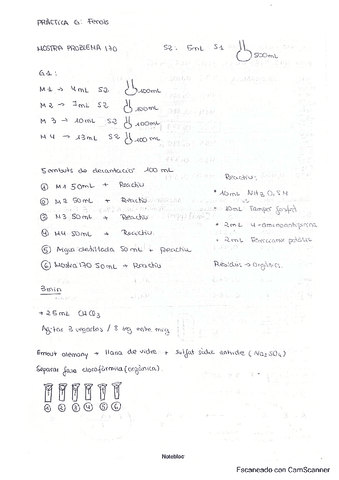 PRÀCTICA 6: Fenols
MOSTRA PROBLEMA 170 S2: 5mL S1 500mL
G1:
M1 → 4mL S2 100mL
M2 → 7mL S2 100mL
M3 → 10mL S2 100mL
M4 → 13mL S2 100mL
5 embuts de decantació 100 mL
① M1 50mL + Reactiu
② M2 50mL + Reactiu
③ M3 50mL + Reactiu
④ M4 50mL + Reactiu
⑤ Aigua destil·lada 50mL + Reactiu
⑥ Mostra 170 50mL + Reactiu
Reactiu:
• 10mL NH3 0,5M
• 10mL Tampó fosfat
+ 2mL 4-aminoantipirina
+ 2mL Ferricianur potàssic
Residus → orgànics.
3min
+ 25mL CHCl3
Agitar 3 vegades /
Embut alemany + llana de vidre + sulfat sòdic anhidre (Na2SO4)
Separar fase clorofòrmica (orgànica).
① ② ③ ④ ⑤ ⑥
Notebloc
Escaneado con CamScanner